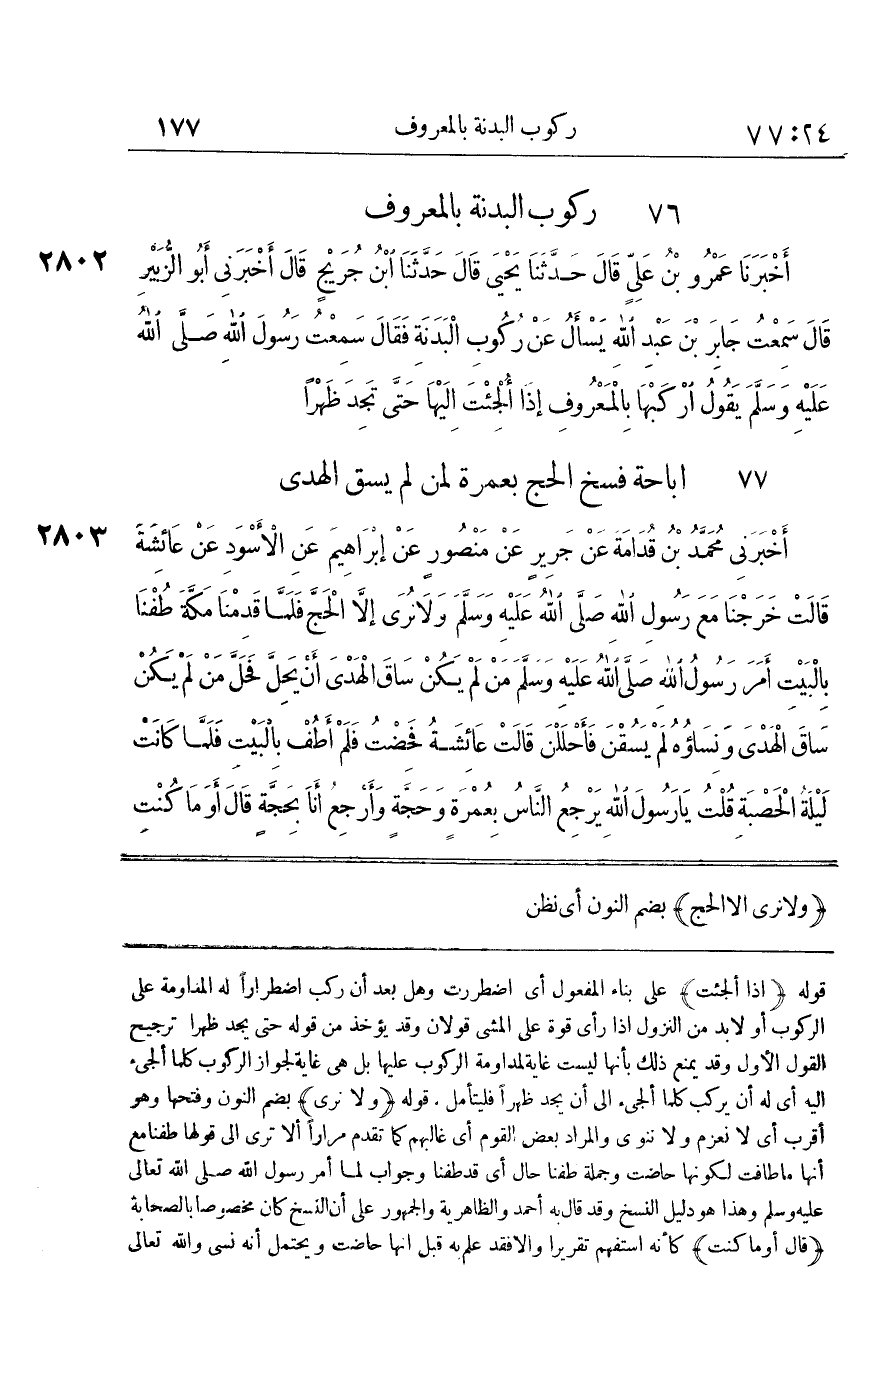 ٢٤ : ٧٧ ركوب البدنة بالمعروف ١٧٧
٧٦ ركوب البدنة بالمعروف
أَخْبَرَنَا عَمْرُو بْنُ عَلِيٍّ قَالَ حَدَّثَنَا يَحْيَى قَالَ حَدَّثَنَا ٱبْنُ جُرَيْجٍ قَالَ أَخْبَرَنِى أَبُو الزُّبَيْرِ ٢٨٠٢
قَالَ سَمِعْتُ جَابِرَ بْنَ عَبْدِ ٱللهِ يَسْأَلُ عَنْ رُكُوبِ الْبَدَنَةِ فَقَالَ سَمِعْتُ رَسُولَ ٱللهِ صَلَّى ٱللهُ
عَلَيْهِ وَسَلَّمَ يَقُولُ ٱرْكَبْهَا بِالْمَعْرُوفِ إِذَا أُلْجِئْتَ إِلَيْهَا حَتَّى تَجِدَ ظَهْرًا
٧٧ اباحة فسخ الحج بعمرة لمن لم يسق الهدى
أَخْبَرَنِى مُحَمَّدُ بْنُ قُدَامَةَ عَنْ جَرِيرٍ عَنْ مَنْصُورٍ عَنْ إِبْرَاهِيمَ عَنِ الْأَسْوَدِ عَنْ عَائِشَةَ ٢٨٠٣
قَالَتْ خَرَجْنَا مَعَ رَسُولِ ٱللهِ صَلَّى ٱللهُ عَلَيْهِ وَسَلَّمَ وَلَانُرَى إِلَّا الْحَجَّ فَلَمَّا قَدِمْنَا مَكَّةَ طُفْنَا
بِالْبَيْتِ أَمَرَ رَسُولُ ٱللهِ صَلَّى ٱللهُ عَلَيْهِ وَسَلَّمَ مَنْ لَمْ يَكُنْ سَاقَ الْهَدْىَ أَنْ يَحِلَّ فَحَلَّ مَنْ لَمْ يَكُنْ
سَاقَ الْهَدْىَ وَنِسَاؤُهُ لَمْ يَسُقْنَ فَأَحْلَلْنَ قَالَتْ عَائِشَةُ فَحِضْتُ فَلَمْ أَطُفْ بِالْبَيْتِ فَلَمَّا كَانَتْ
لَيْلَةُ الْحَصْبَةِ قُلْتُ يَارَسُولَ ٱللهِ يَرْجِعُ النَّاسُ بِعُمْرَةٍ وَحَجَّةٍ وَأَرْجِعُ أَنَا بِحَجَّةٍ قَالَ أَوَ مَا كُنْتِ
﴿ولانرى الاالحج﴾ بضم النون أى نظن
قوله ﴿اذا ألجئت﴾ على بناء المفعول أى اضطررت وهل بعد أن ركب اضطراراً له المداومة على
الركوب أو لابد من النزول اذا رأى قوة على المشى قولان وقد يؤخذ من قوله حتى يجد ظهرا ترجيح
القول الأول وقد يمنع ذلك بأنها ليست غاية لمداومة الركوب عليها بل هى غاية لجواز الركوب كلما ألجىء
اليه أى له أن يركب كلما ألجىء الى أن يجد ظهراً فليتأمل . قوله ﴿ولا نرى﴾ بضم النون وفتحها وهو
أقرب أى لا نعزم ولا ننوى والمراد بعض القوم أى غالبهم كما تقدم مراراً ألا ترى الى قولها طفنا مع
أنها ماطافت لكونها حاضت وجملة طفنا حال أى قد طفنا وجواب لما أمر رسول الله صلى الله تعالى
عليه وسلم وهذا هو دليل النسخ وقد قال به أحمد والظاهرية والجمهور على أن النسخ كان مخصوصا بالصحابة
﴿قال أوما كنت﴾ كأنه استفهم تقريرا والافقد علم به قبل انها حاضت ويحتمل أنه نسى والله تعالى